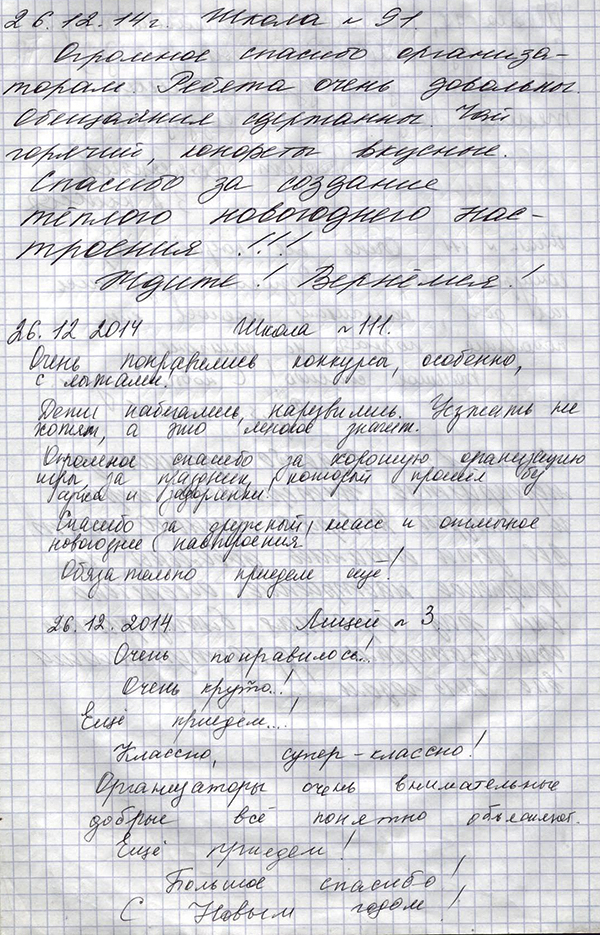 26.12.14г. Школа № 91.
Огромное спасибо организа-
торам Ребята очень довольны.
Обещания сдержанны. Чай
горячий, конфеты вкусные.
Спасибо за создание
тёплого новогоднего нас-
троения !!!
Ждите! Вернёмся!
26.12 2014 Школа №111.
Очень понравились конкурсы, особенно,
с лыжами.
Дети набегались, нарезвились. Уезжать не
хотят, а это многое значит.
Огромное спасибо за хорошую организацию
игры за праздник, который прошел без
и задоринки!
Спасибо за дружный класс и отличное
новогоднее настроения
Обязательно приедем ещё!
26.12.2014. Лицей №3
Очень понравилось!..
Очень круто..!
Ещё приедем...!
Классно, супер-классно!
Организаторы очень внимательные
добрые всё понятно объясняют.
Ещё приедем!
Большое спасибо!
С Новым годом!